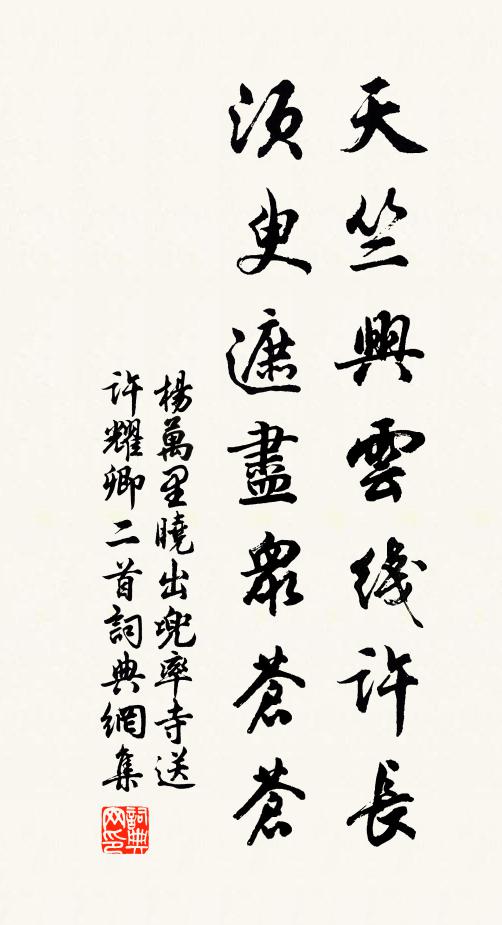 天竺興雲綫許長
須臾遮盡衆蒼蒼
楊萬里曉出兜率寺送
許耀卿二首詞典網集
詞典
网印